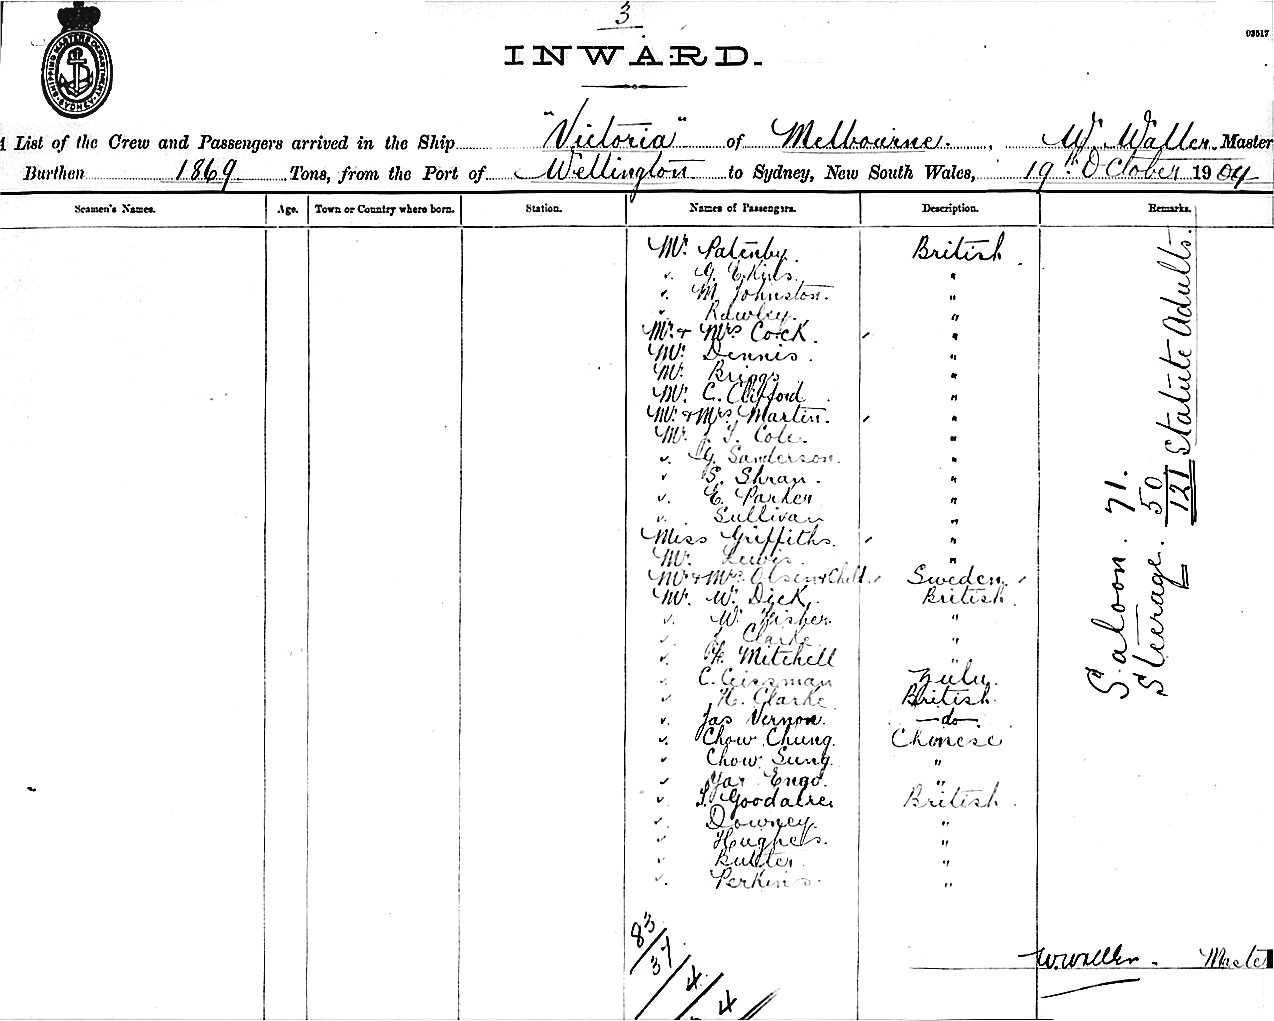 3
03517
SHIPPING MASTERS DEPARTMENT SYDNEY
INWARD.
A List of the Crew and Passengers arrived in the Ship "Victoria" of Melbourne, W. Waller Master
Burthen 1869 Tons, from the Port of Wellington to Sydney, New South Wales, 19th October 1904
Seamen's Names. Age. Town or Country where born. Station. Names of Passengers. Description. Remarks.
Mr Patenby. British
" G. Ekins. "
" M Johnston. "
" Rawley. "
Mr. & Mrs Cock. "
Mr. Dennis. "
Mr. Briggs "
Mr. C. Clifford "
Mr. & Mrs Martin. "
Mr. J. T. Cole. "
" G. Sanderson. "
" S. Shran. "
" E. Parker "
" Sullivan "
Miss Griffiths. "
Mr. Lewis. "
Mr & Mrs. Olsen & Child. Sweden.
Mr. W. Dick. British.
" W. Fisher. "
" Clarke "
" Mitchell "
" C. Ceissman Zulu.
" H. Clarke British.
" Jas Vernon. do
" Chow Chung. Chinese
" Chow Sung. "
" Yar Eng. "
" Goodacre. British.
" Downey. "
" Hughes. "
" Butler. "
" Perkins. "
Saloon. 71.
Steerage. 50
121 Statute Adults.
83
37
4
4
W. Waller. Master